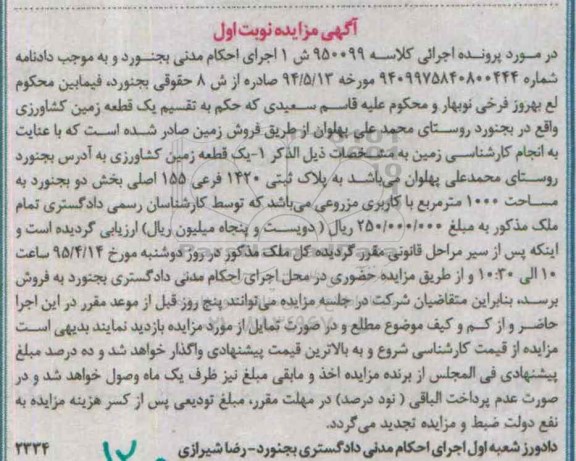 آگهی مزایده نوبت اول
در مورد پرونده اجرائی کلاسه ۹۵۰۰۹۹ ش ۱ اجرای احکام مدنی بجنورد و به موجب دادنامه
شماره ۹۴۰۹۹۷۵۸۴۰۸۰۰۴۴۴ مورخه ۹۴/۵/۱۳ صادره از ش ۸ حقوقی بجنورد، فیمابین محکوم
لع بهروز فرخی نوبهار و محکوم علیه قاسم سعیدی که حکم به تقسیم یک قطعه زمین کشاورزی
واقع در بجنورد روستای محمد علی پهلوان از طریق فروش زمین صادر شده است که با عنایت
به انجام کارشناسی زمین به مشخصات ذیل الذکر ۱-یک قطعه زمین کشاورزی به آدرس بجنورد
روستای محمدعلی پهلوان می‌باشد به پلاک ثبتی ۱۴۲۰ فرعی ۱۵۵ اصلی بخش دو بجنورد به
مساحت ۱۰۰۰ مترمربع با کاربری مزروعی می‌باشد که توسط کارشناسان رسمی دادگستری تمام
ملک مذکور به مبلغ ۲۵۰/۰۰۰/۰۰۰ ریال ( دویست و پنجاه میلیون ریال) ارزیابی گردیده است و
اینکه پس از سیر مراحل قانونی مقرر گردیده کل ملک مذکور در روز دوشنبه مورخ ۹۵/۴/۱۴ ساعت
۱۰ الی ۱۰:۳۰ و از طریق مزایده حضوری در محل اجرای احکام مدنی دادگستری بجنورد به فروش
برسد، بنابراین متقاضیان شرکت در جلسه مزایده می‌توانند پنج روز قبل از موعد مقرر در این اجرا
حاضر و از کم و کیف موضوع مطلع و در صورت تمایل از مورد مزایده بازدید نمایند بدیهی است
مزایده از قیمت کارشناسی شروع و به بالاترین قیمت پیشنهادی واگذار خواهد شد و ده درصد مبلغ
پیشنهادی فی المجلس از برنده مزایده اخذ و مابقی مبلغ نیز ظرف یک ماه وصول خواهد شد و در
صورت عدم پرداخت الباقی ( نود درصد) در مهلت مقرر، مبلغ تودیعی پس از کسر هزینه مزایده به
نفع دولت ضبط و مزایده تجدید می‌گردد.
دادورز شعبه اول اجرای احکام مدنی دادگستری بجنورد- رضا شیرازی ۲۳۳۴